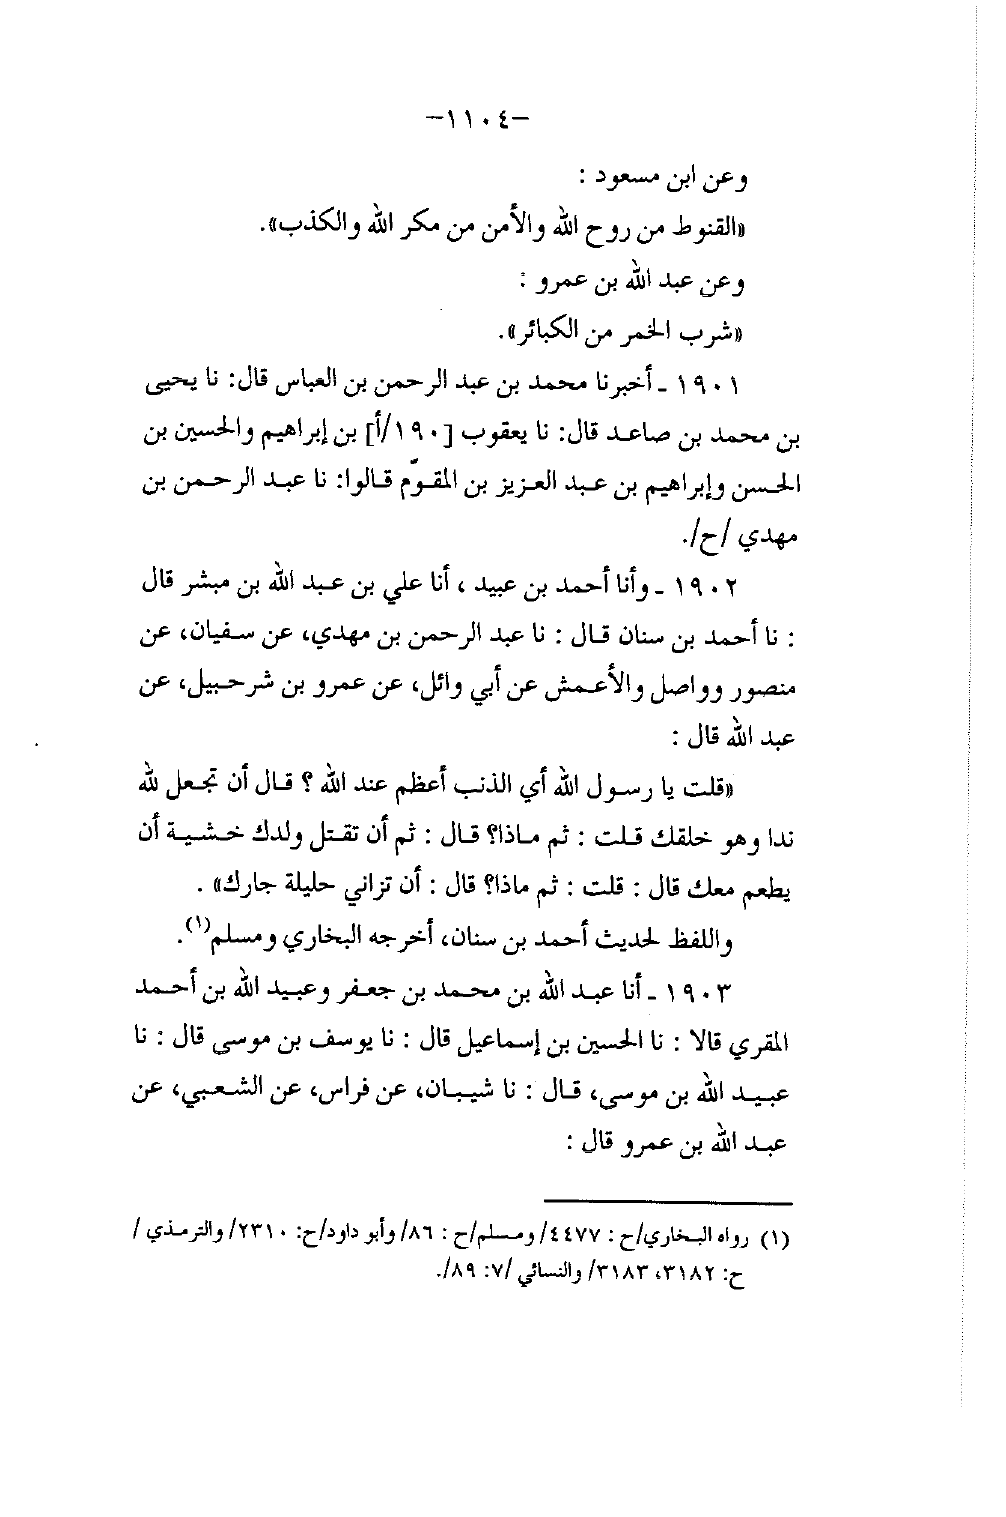 -١١٠٤-
وعن ابن مسعود :
«القنوط من روح الله والأمن من مكر الله والكذب».
وعن عبد الله بن عمرو :
«شرب الخمر من الكبائر».
١٩٠١ ـ أخبرنا محمد بن عبد الرحمن بن العباس قال: نا يحيى
بن محمد بن صاعد قال: نا يعقوب [١٩٠/أ] بن إبراهيم والحسين بن
الحسن وإبراهيم بن عبد العزيز بن المقوّم قالوا: نا عبد الرحمن بن
مهدي /ح/.
١٩٠٢ ـ وأنا أحمد بن عبيد ، أنا علي بن عبد الله بن مبشر قال
: نا أحمد بن سنان قال : نا عبد الرحمن بن مهدي، عن سفيان، عن
منصور وواصل والأعمش عن أبي وائل، عن عمرو بن شرحبيل، عن
عبد الله قال :
«قلت يا رسول الله أي الذنب أعظم عند الله ؟ قال أن تجعل لله
ندا وهو خلقك قلت : ثم ماذا؟ قال : ثم أن تقتل ولدك خشية أن
يطعم معك قال : قلت : ثم ماذا؟ قال : أن تزاني حليلة جارك» .
واللفظ لحديث أحمد بن سنان، أخرجه البخاري ومسلم(١).
١٩٠٣ ـ أنا عبد الله بن محمد بن جعفر وعبيد الله بن أحمد
المقري قالا : نا الحسين بن إسماعيل قال : نا يوسف بن موسى قال : نا
عبيد الله بن موسى، قال : نا شيبان، عن فراس، عن الشعبي، عن
عبد الله بن عمرو قال :
(١) رواه البخاري/ح : ٤٤٧٧/ ومسلم/ح : ٨٦/ وأبو داود/ح: ٢٣١٠/ والترمذي /
ح: ٣١٨٢، ٣١٨٣/ والنسائي /٧: ٨٩/.